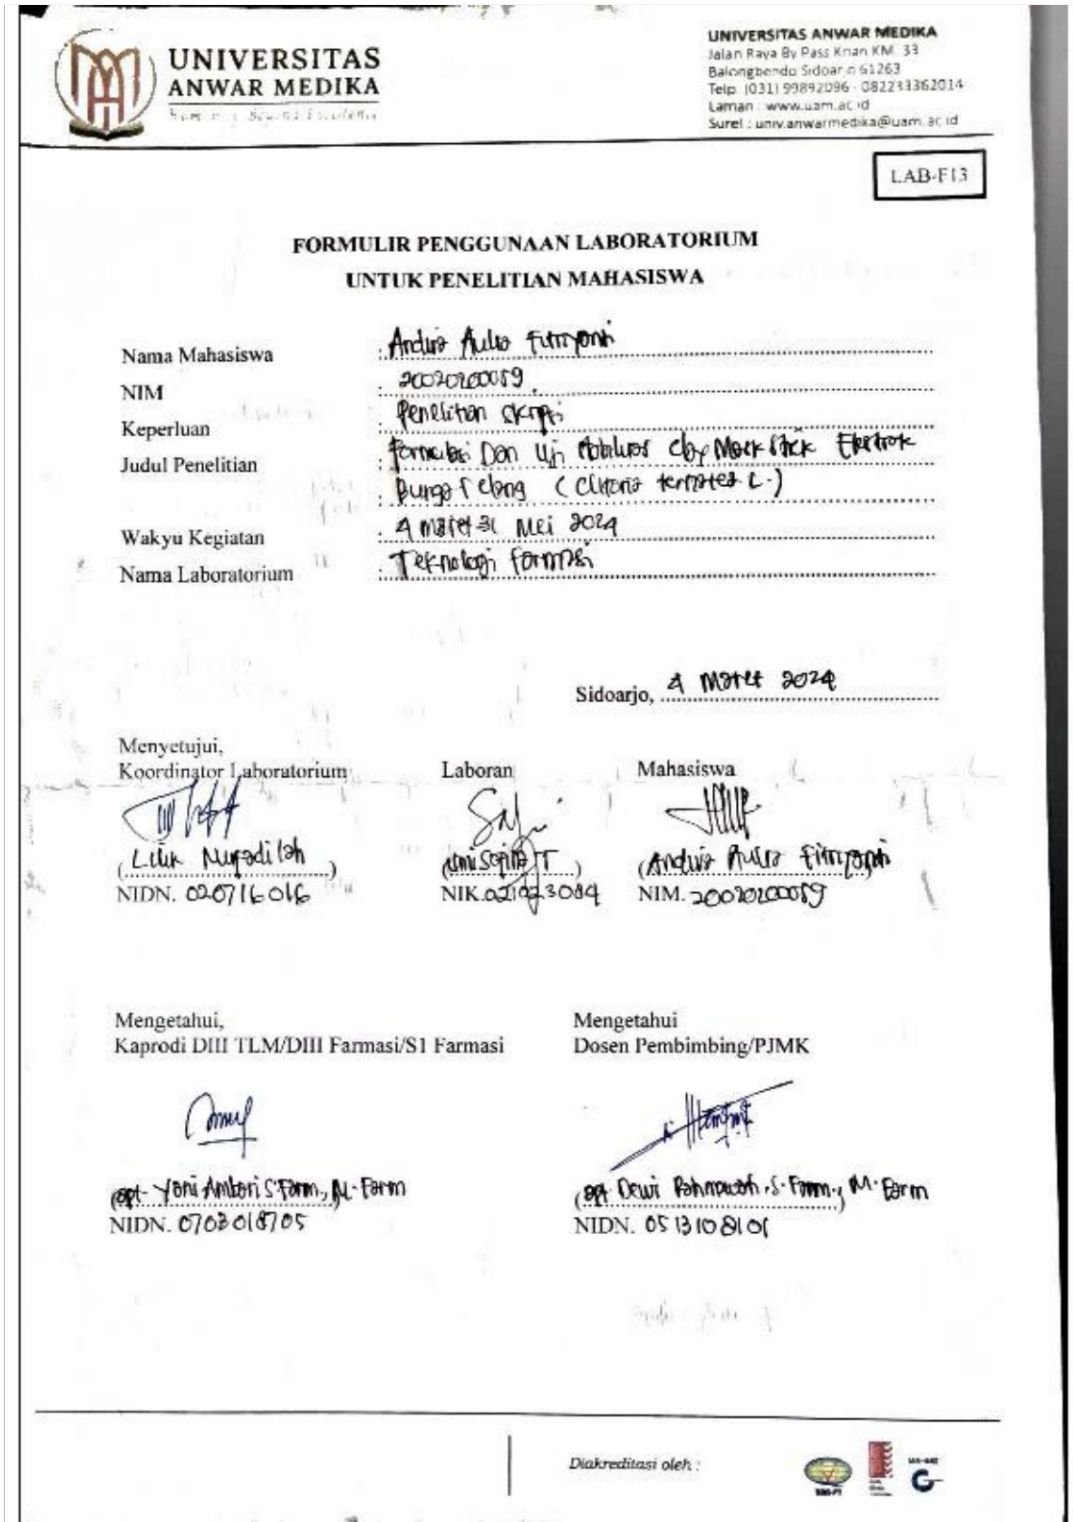 UNIVERSITAS
ANWAR MEDIKA
UNIVERSITAS ANWAR MEDIKA
Jalan Raya By Pass Krian KM. 33
Balongbendo Sidoarjo 61263
Telp. (031) 99892096 - 082233362014
Laman : www.uam.ac.id
Surel : univ.anwarmedika@uam.ac.id
LAB-F13
FORMULIR PENGGUNAAN LABORATORIUM
UNTUK PENELITIAN MAHASISWA
Nama Mahasiswa : Andira Aulia Fitriyani
NIM : 20020200059
Keperluan : Penelitian skripsi
Judul Penelitian : Formulasi Dan Uji stabilitas Clay Mask Stick Ekstrak
Bunga Telang (Clitoria ternatea L.)
Wakyu Kegiatan : 4 Maret-31 Mei 2024
Nama Laboratorium : Teknologi Farmasi
Sidoarjo, 4 Maret 2024
Menyetujui,
Koordinator Laboratorium Laboran Mahasiswa
(Lilik Nurfadilah) (Umi Sofina T) (Andira Aulia Fitriyani)
NIDN. 020716016 NIK. NIM. 20020200059
Mengetahui, Mengetahui
Kaprodi DIII TLM/DIII Farmasi/S1 Farmasi Dosen Pembimbing/PJMK
(apt. Yani Ambari S.Farm., M.Farm) (apt. Dewi Rahmawati, S.Farm., M.Farm)
NIDN. 0703018705 NIDN. 0513108101
Diakreditasi oleh :